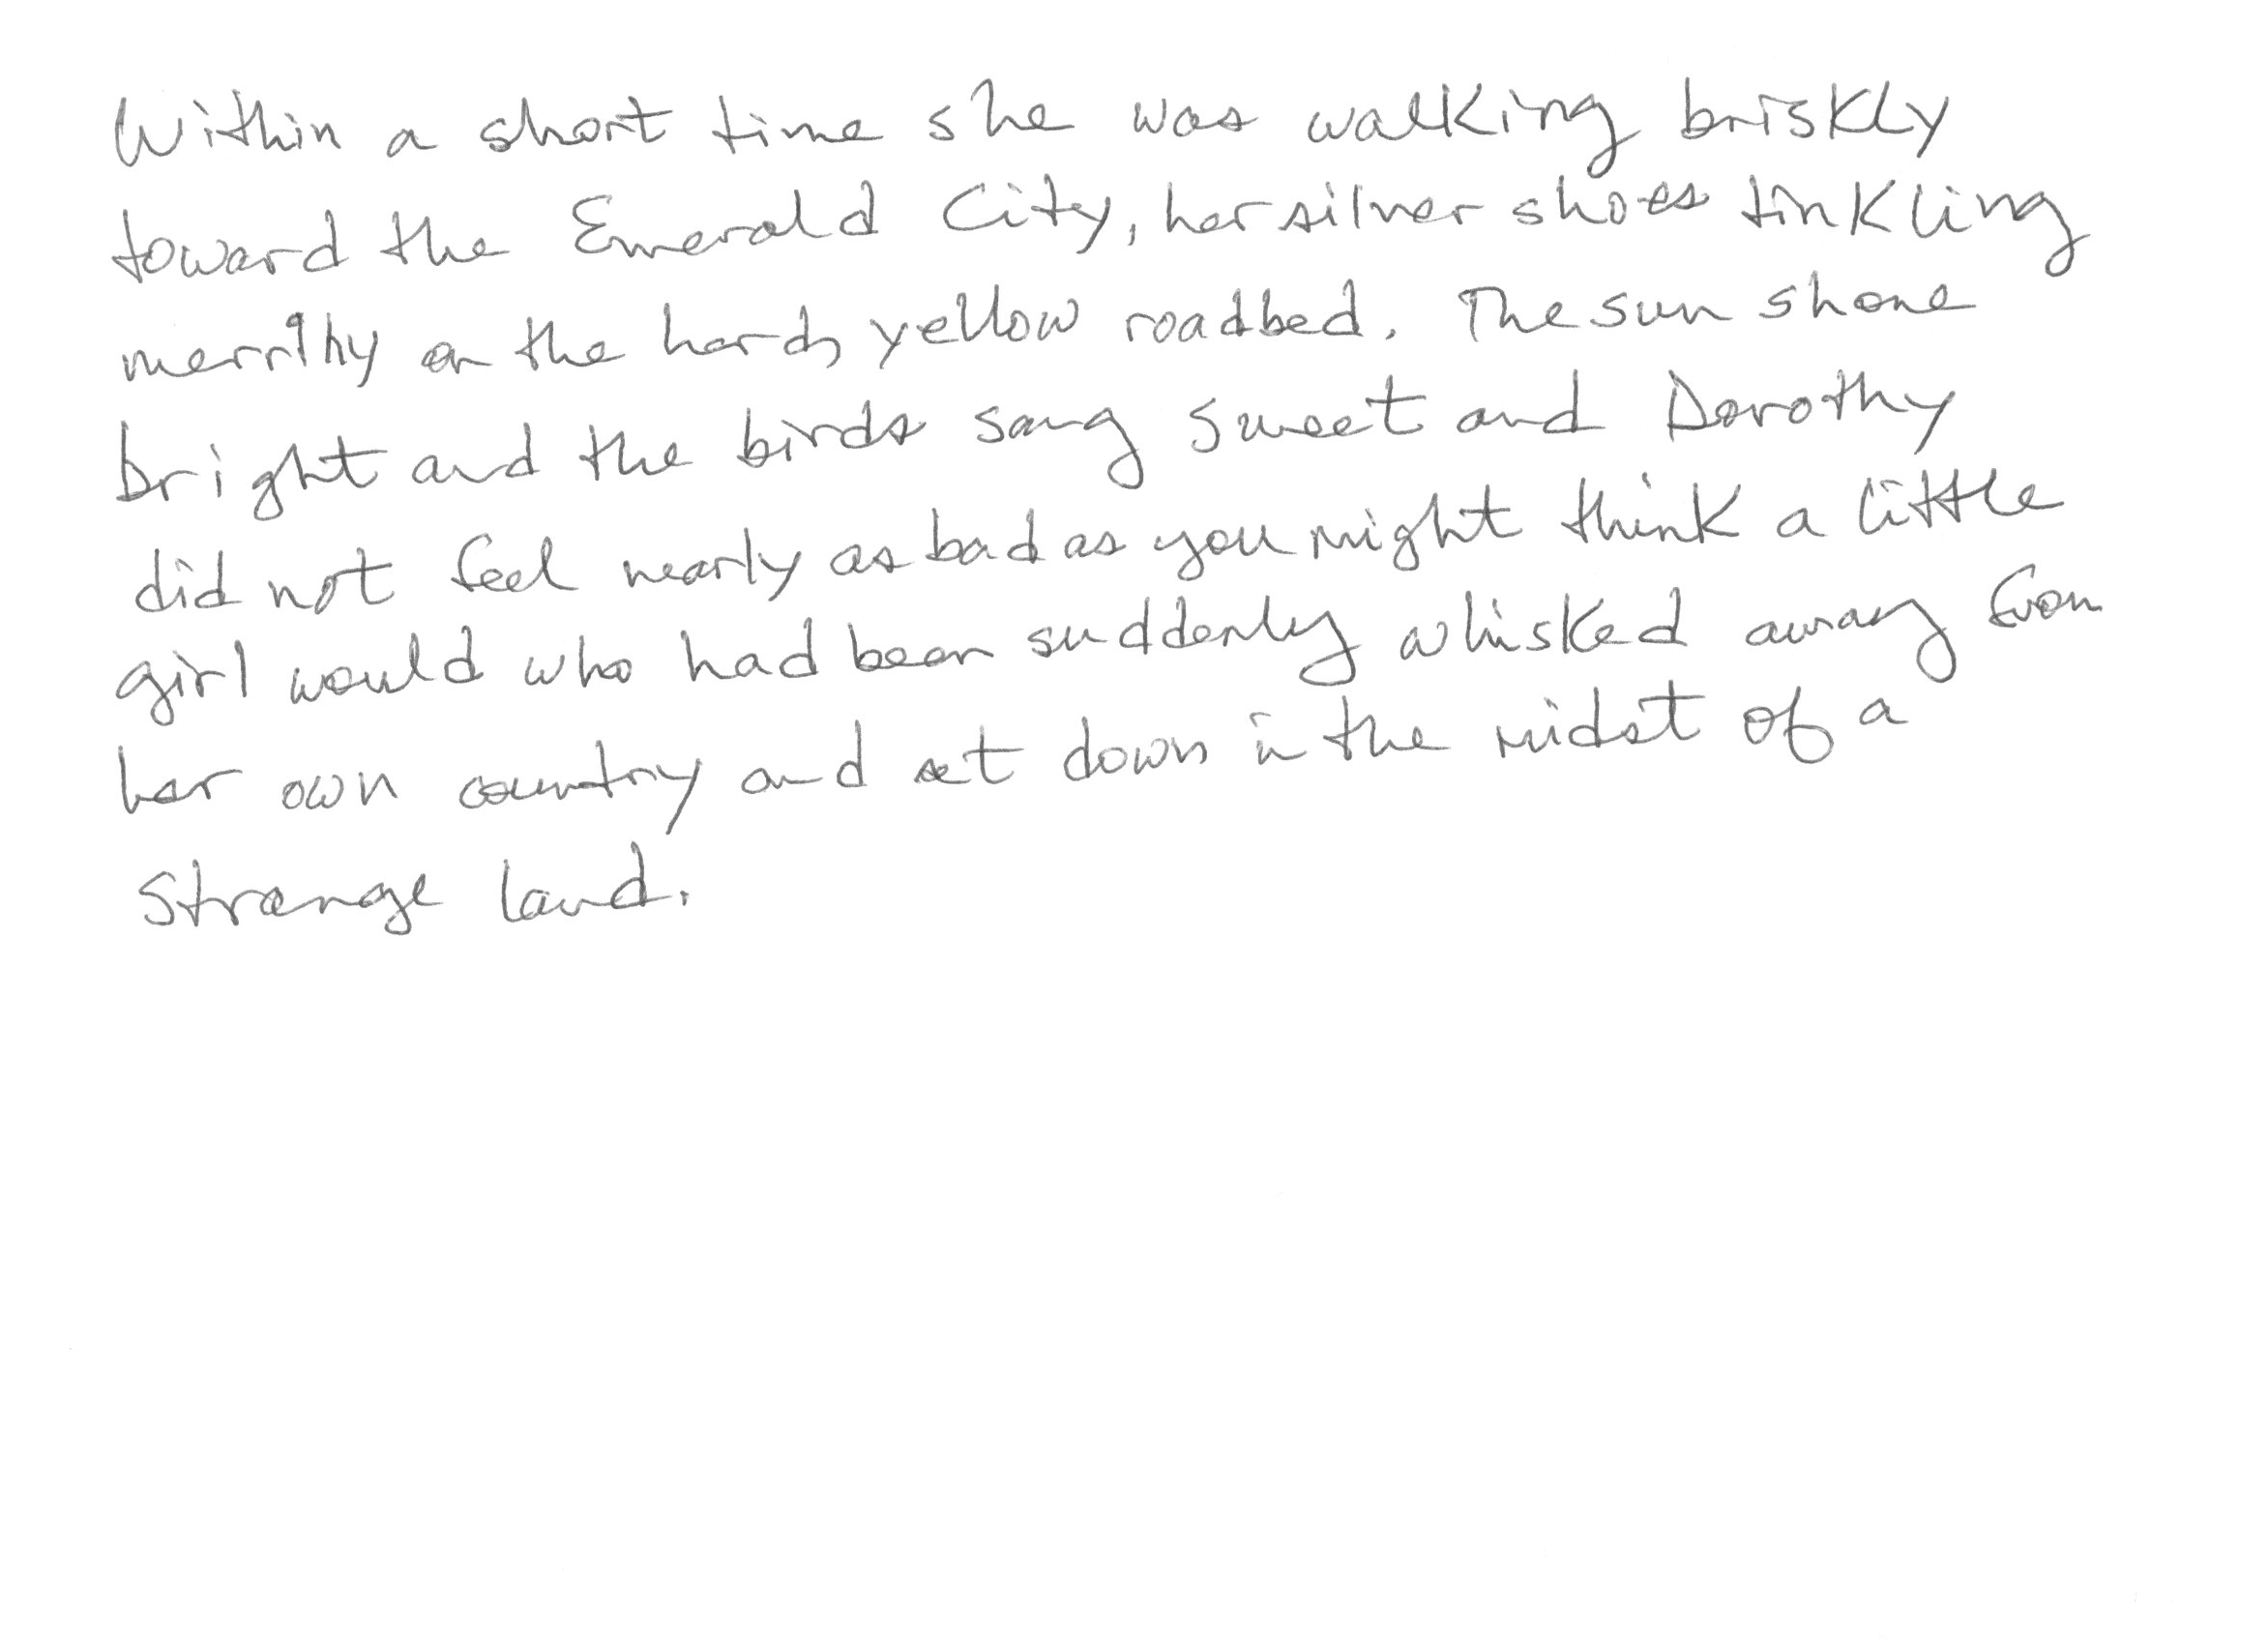 Within a short time she was walking briskly
toward the Emerald City, her silver shoes tinkling
merrily on the hard, yellow roadbed. The sun shone
bright and the birds sang sweet and Dorothy
did not feel nearly as bad as you might think a little
girl would who had been suddenly whisked away from
her own country and set down in the midst of a
strange land.